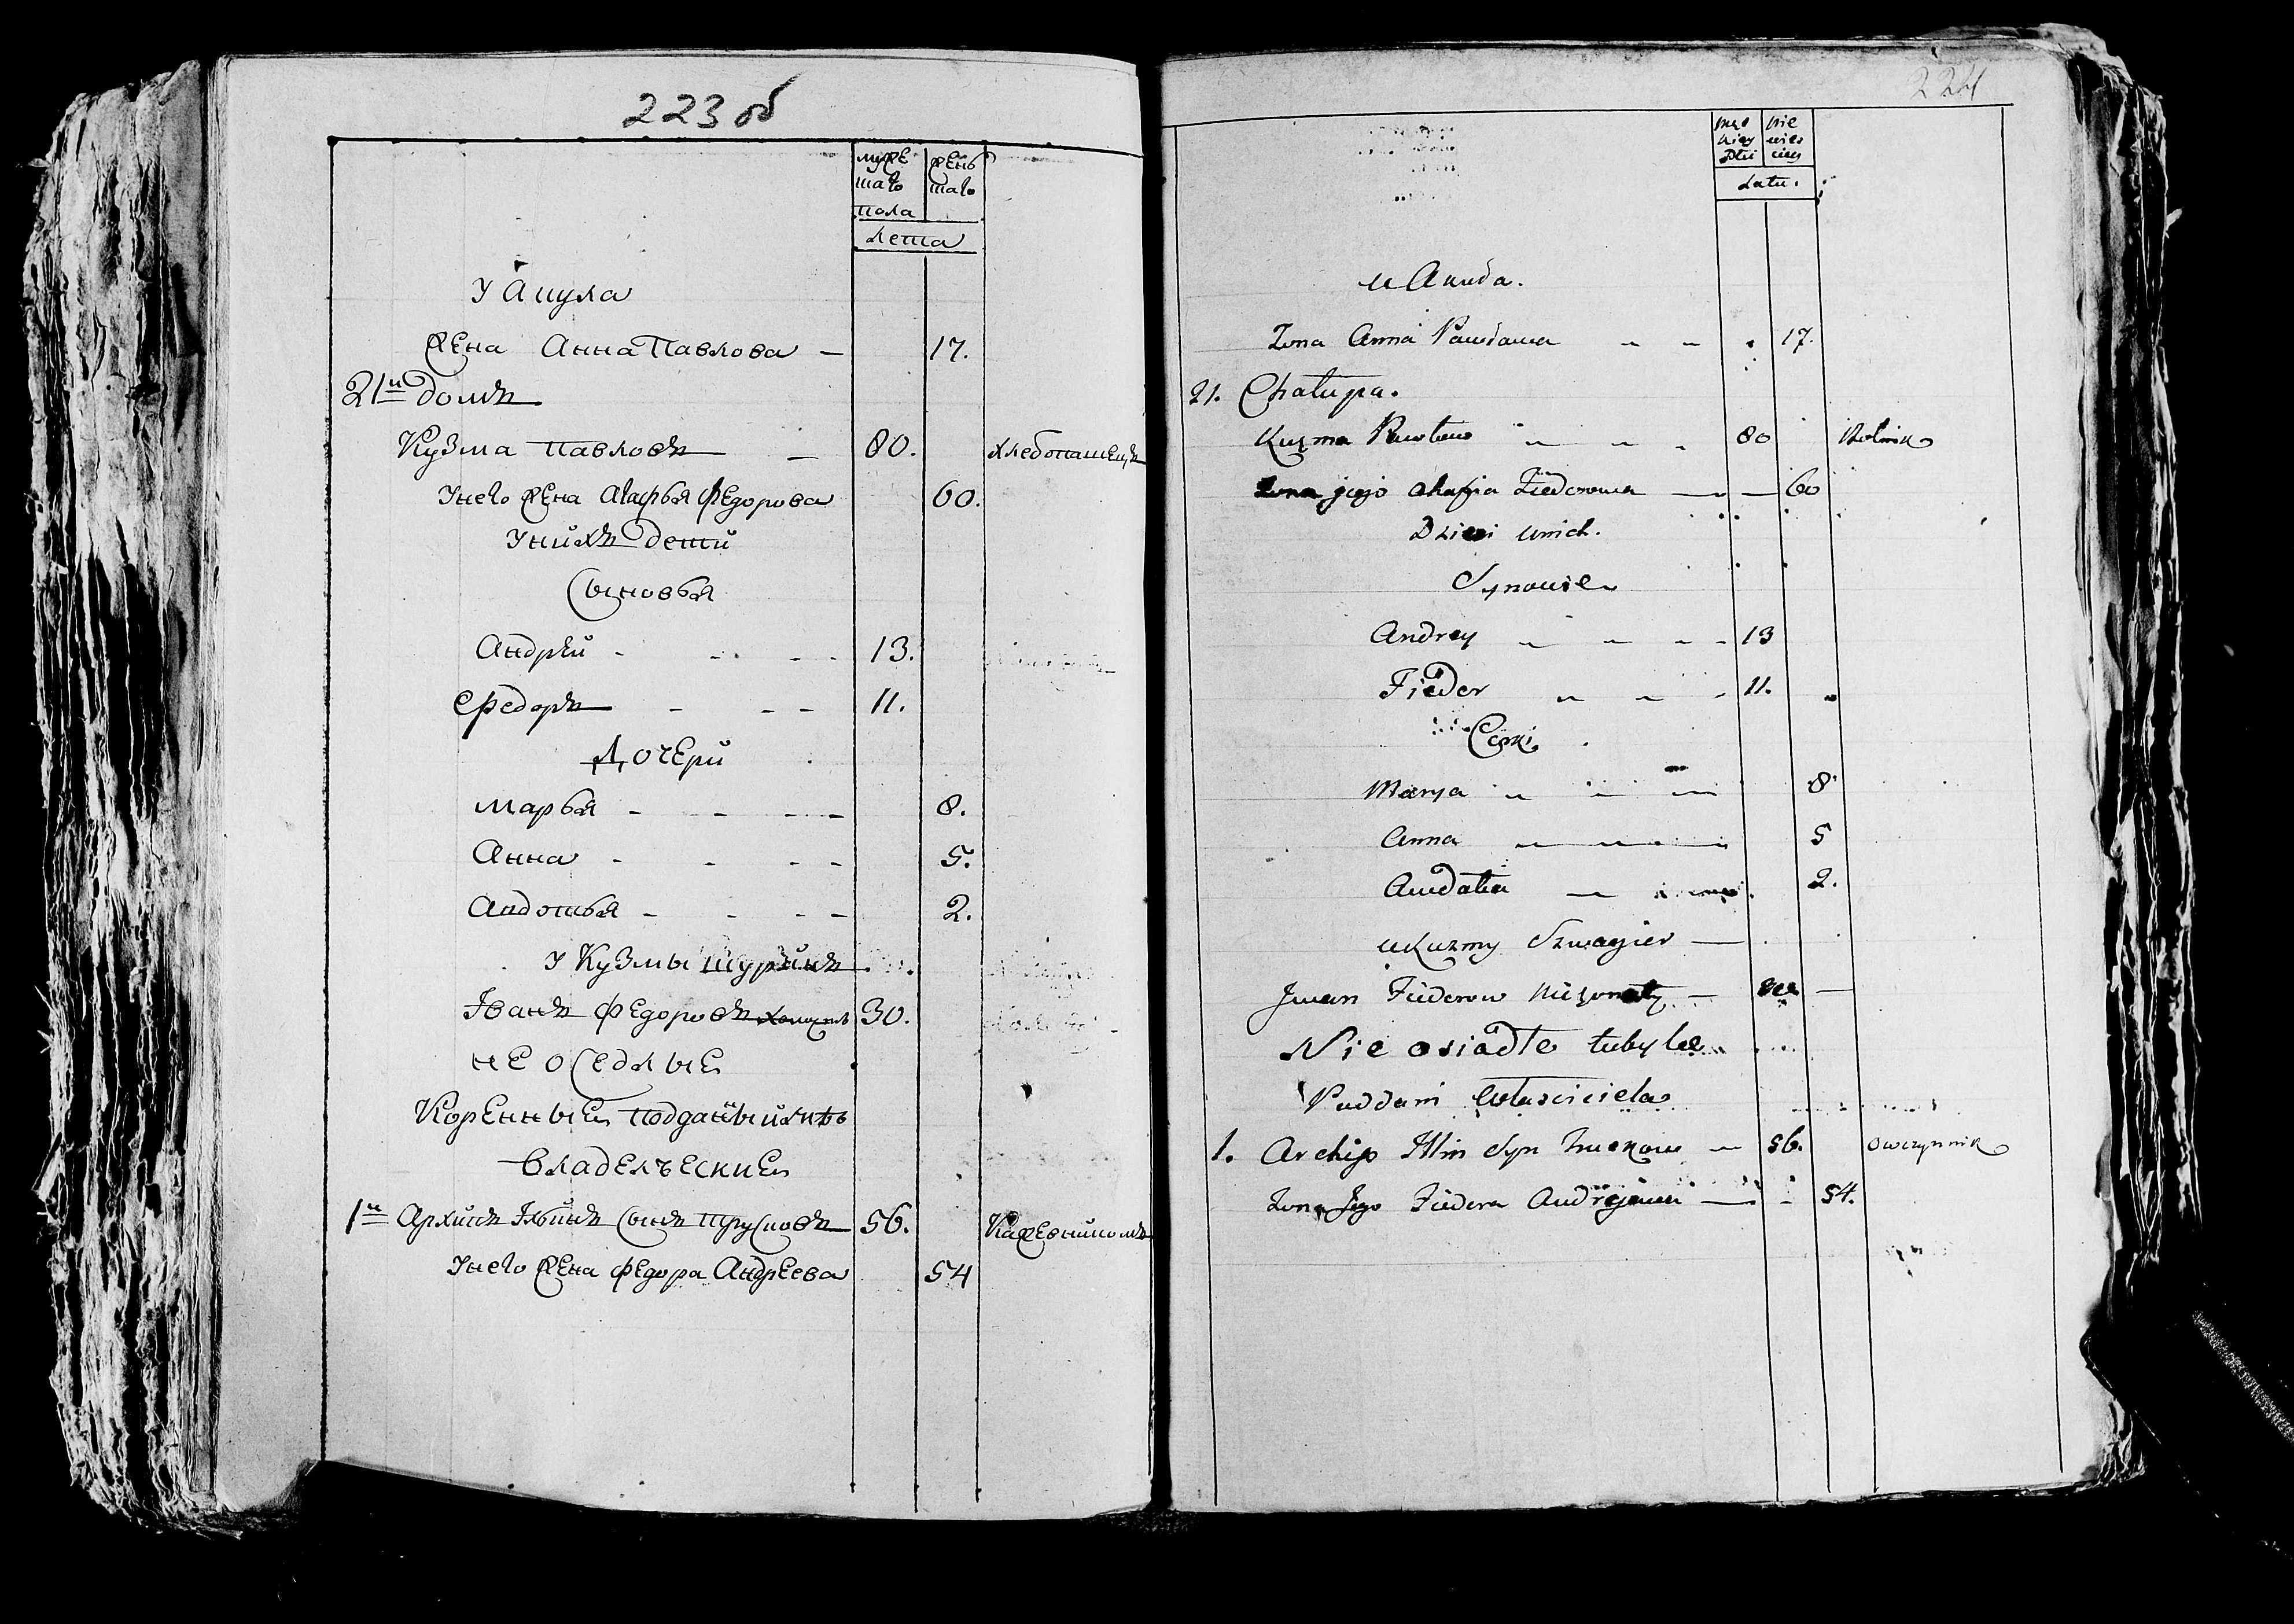 223 об
муже
шаго
пола
жень
шаго
лета
У Акула
жена Анна Павлова 17.
21й домъ
Кузма Павловъ 80. хлебопашецъ
У него жена Агафья Федорова 60.
У нихъ дети
Сыновья
Андрей 13.
Федоръ 11.
Дочери
Марья 8.
Анна 5.
Авдотья 2.
У Кузмы шуринъ
Іванъ Федоровъ холостъ 30.
не оседлые
Коренные подданные
владелческие
1й Архипъ Ильинъ сынъ 56.
У него жена Федора Андреева 54
224
Latu.
u Akuła.
Żona Anna Pawłowa 17.
21. Chałupa.
Kuzma Pawłow 80 Rolnik
Żona jego Ahafia Fiedorowa 60
Dzieci u nich.
Synowie
Andrey 13
Fiedor 11.
Corki
Marya 8
Anna 5
Awdotia 2.
u Kuzmy Szwagier
Jwan Fiedorow nieżonaty
Nie osiadłe tubylce
Poddani właściciela
1. Archip Ilin Syn 56. owczynnik
Żona Jego Fiedora Andrejewa 54.